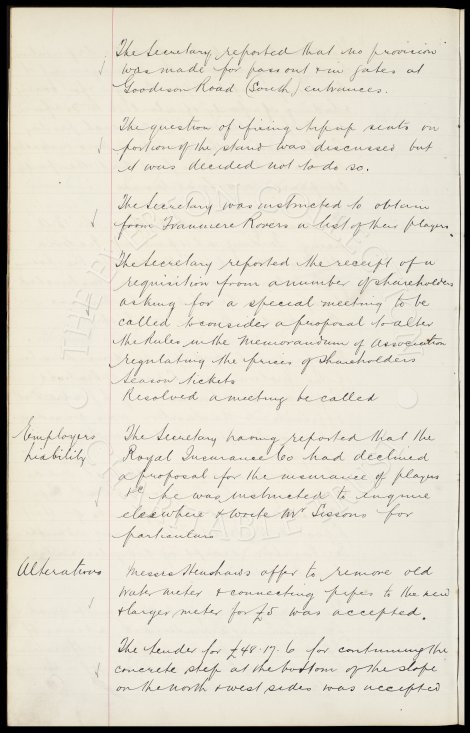 The Secretary reported that no provision
was made for pass out & in gates at
Goodison Road (South) entrances.
The question of fixing tip up seats on
portion of the stand was discussed but
it was decided not to do so.
The Secretary was instructed to obtain
from Tranmere Rovers a list of their players.
The Secretary reported the receipt of a
requisition from a number of shareholders
asking for a special meeting to be
called to consider a proposal to alter
the Rules in the Memorandum of Association
regulating the prices of shareholders
season tickets
Resolved a meeting be called
Employers
Liability
The Secretary having reported that the
Royal Insurance Co had declined
a proposal for the insurance of players
&c he was instructed to inquire
elsewhere & write Mr Sissons for
particulars
Alterations
Messrs Henshaws offer to remove old
water meter & connecting pipes to the new
& larger meter for £5 was accepted.
The tender for £48.17.6 for continuing the
concrete step at the bottom of the slope
on the north & west sides was accepted
THE EVERTON COLLEC
TABLE